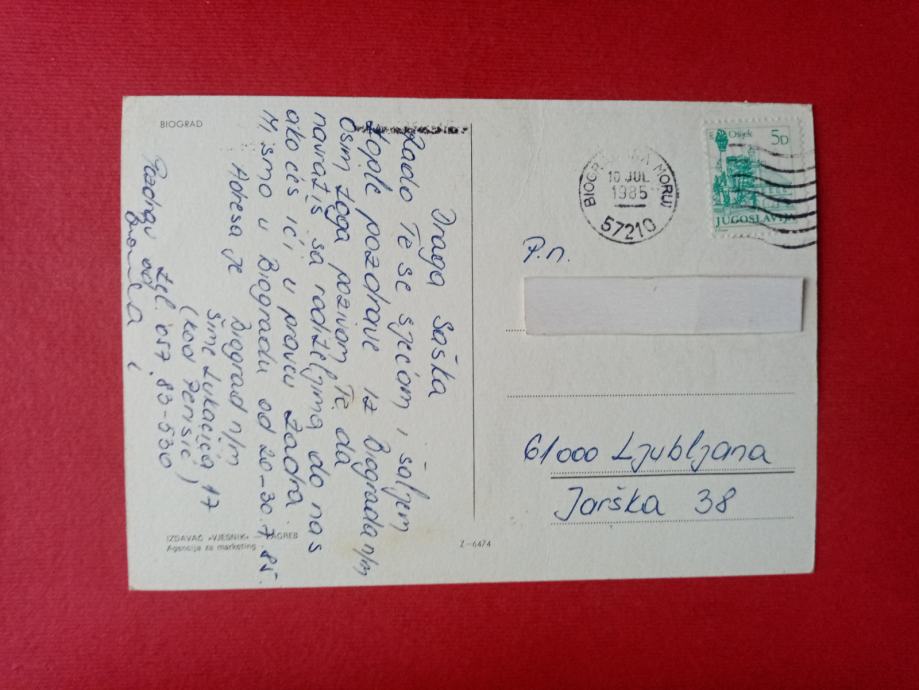 BIOGRAD
Draga Saška
Rado Te se sjećam i šaljem
tople pozdrave iz Biograda n/m
Osim toga pozivam Te da
navratiš sa roditeljima do nas
ako ćeš ići u pravcu Zadra.
Mi smo u Biogradu od 20-30.7.85.
Adresa je Biograd n/m
Šime Lukačića 17
(kod Peršić)
tel. 057. 83-530
Pozdrav od
i
IZDAVAČ »VJESNIK« — ZAGREB
Agencija za marketing
Z-6474
BIOGRAD NA MORU
10 JUL
1985
57210
Osijek
5D
JUGOSLAVIJA
P.n.
61000 Ljubljana
Jarška 38